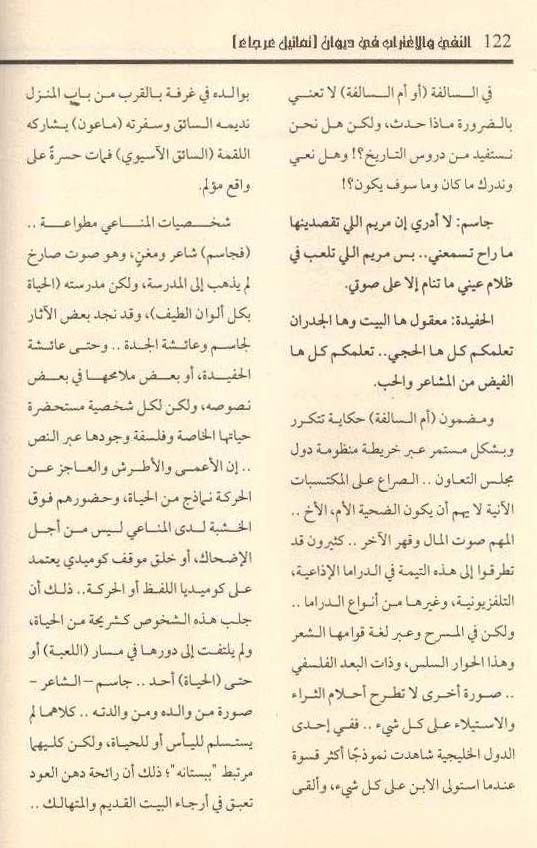 122 النفي والاغتراب في ديوان [تماثيل عرجاء]
في السالفة (أو أم السالفة) لا تعني
بالضرورة ماذا حدث، ولكن هل نحن
نستفيد من دروس التاريخ؟! وهل نعي
وندرك ما كان وما سوف يكون؟!
جاسم: لا أدري إن مريم اللي تقصدينها
ما راح تسمعني.. بس مريم اللي تلعب في
ظلام عيني ما تنام إلا على صوتي.
الحفيدة: معقول ها البيت وها الجدران
تعلمكم كل ها الحجي.. تعلمكم كل ها
الفيض من المشاعر والحب.
ومضمون (أم السالفة) حكاية تتكرر
وبشكل مستمر عبر خريطة منظومة دول
مجلس التعاون .. الصراع على المكتسبات
الآنية لا يهم أن يكون الضحية الأم، الأخ ..
المهم صوت المال وقهر الآخر .. كثيرون قد
تطرقوا إلى هذه التيمة في الدراما الإذاعية،
التلفزيونية، وغيرها من أنواع الدراما ..
ولكن في المسرح وعبر لغة قوامها الشعر
وهذا الحوار السلس، وذات البعد الفلسفي
.. صورة أخرى لا تطرح أحلام الثراء
والاستيلاء على كل شيء .. ففي إحدى
الدول الخليجية شاهدت نموذجًا أكثر قسوة
عندما استولى الابن على كل شيء، وألقى
بوالده في غرفة بالقرب من باب المنزل
نديمه السائق وسفرته (ماعون) يشاركه
اللقمة (السائق الآسيوي) فمات حسرةً على
واقع مؤلم.
شخصيات المناعي مطواعة ..
(فجاسم) شاعر ومغنٍ، وهو صوت صارخ
لم يذهب إلى المدرسة، ولكن مدرسته (الحياة
بكل ألوان الطيف)، وقد نجد بعض الآثار
لجاسم وعائشة الجدة .. وحتى عائشة
الحفيدة، أو بعض ملامحها في بعض
نصوصه، ولكن لكل شخصية مستحضرة
حياتها الخاصة وفلسفة وجودها عبر النص
.. إن الأعمى والأطرش والعاجز عن
الحركة نماذج من الحياة، وحضورهم فوق
الخشبة لدى المناعي ليس من أجل
الإضحاك، أو خلق موقف كوميدي يعتمد
على كوميديا اللفظ أو الحركة.. ذلك أن
جلب هذه الشخوص كشريحة من الحياة،
ولم يلتفت إلى دورها في مسار (اللعبة) أو
حتى (الحياة) أحد .. جاسم – الشاعر –
صورة من والده ومن والدته .. كلاهما لم
يستسلم لليأس أو للحياة، ولكن كليهما
مرتبط "ببستانه"؛ ذلك أن رائحة دهن العود
تعبق في أرجاء البيت القديم والمتهالك ..